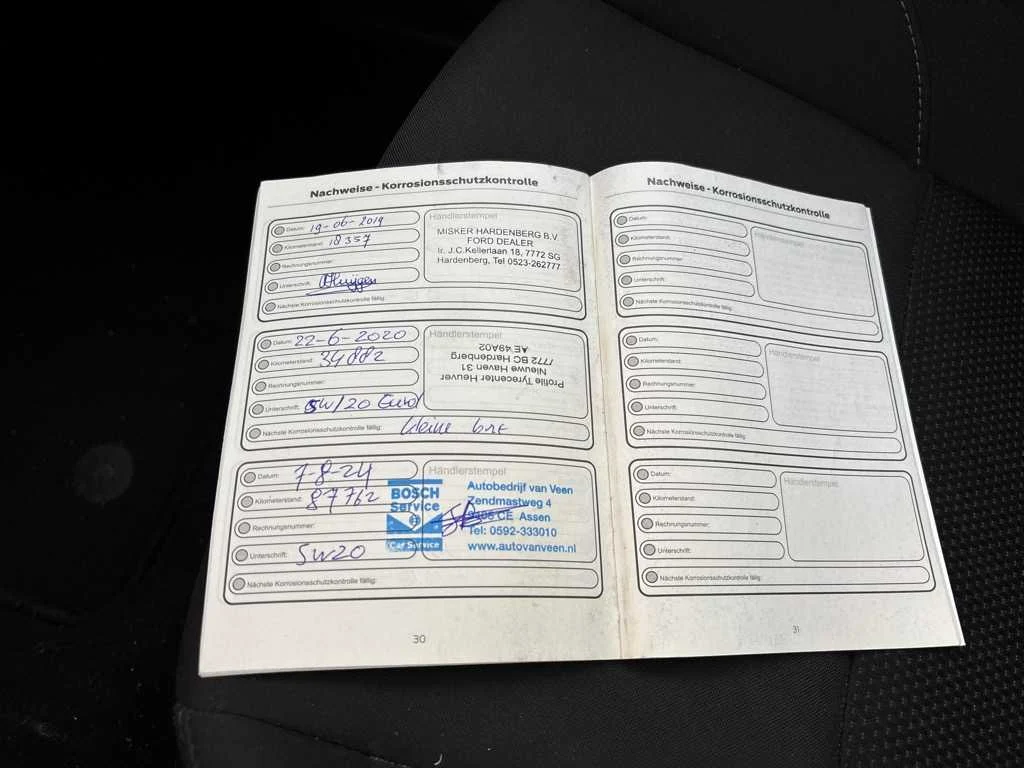 Nachweise - Korrosionsschutzkontrolle
Datum: 19-06-2019
Kilometerstand: 18357
Rechnungsnummer:
Unterschrift:
Nächste Korrosionsschutzkontrolle fällig:
Händlerstempel
MISKER HARDENBERG B.V.
FORD DEALER
Ir. J.C.Kellerlaan 18, 7772 SG
Hardenberg, Tel 0523-262777
Datum: 22-6-2020
Kilometerstand: 34882
Rechnungsnummer:
Unterschrift: 5W/20 Eurol
Nächste Korrosionsschutzkontrolle fällig: kleine brt
Händlerstempel
Profile Tyrecenter Heuver
Nieuwe Haven 31
7772 BC Hardenberg
AE49A02
Datum: 7-8-24
Kilometerstand: 87762
Rechnungsnummer:
Unterschrift: 5W20
Nächste Korrosionsschutzkontrolle fällig:
Händlerstempel
BOSCH
Service
Car Service
Autobedrijf van Veen
Zendmastweg 4
9405 CE Assen
Tel: 0592-333010
www.autovanveen.nl
30
Nachweise - Korrosionsschutzkontrolle
Datum:
Kilometerstand:
Rechnungsnummer:
Unterschrift:
Nächste Korrosionsschutzkontrolle fällig:
Händlerstempel
Datum:
Kilometerstand:
Rechnungsnummer:
Unterschrift:
Nächste Korrosionsschutzkontrolle fällig:
Händlerstempel
Datum:
Kilometerstand:
Rechnungsnummer:
Unterschrift:
Nächste Korrosionsschutzkontrolle fällig:
Händlerstempel
31